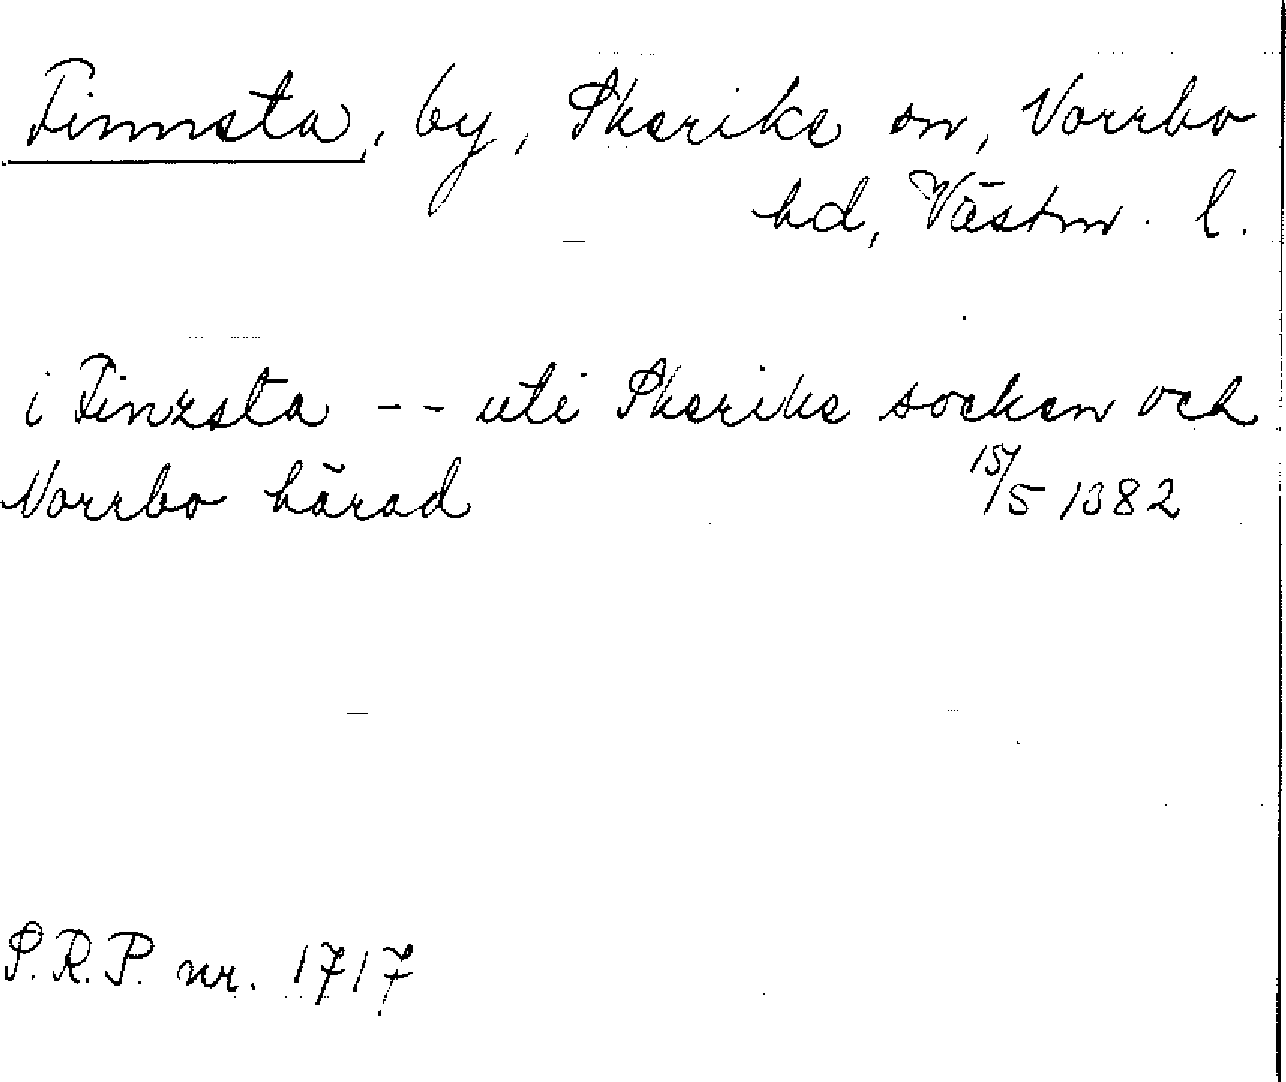 Finnsta, by, Skerike sn, Norrbo
hd, Västm. l.
i Finzsta -- uti Skerike socken och
Norrbo härad 15/5 1382
S.R.P. nr. 1717